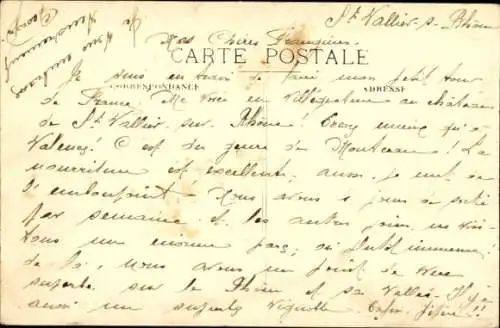 St Vallier-s-Rhône
Mes Chères Frangines.
CARTE POSTALE
CORRESPONDANCE ADRESSE
Je suis en train de faire mon petit tour
de France. Me voici en villégiature au château
de St Vallier sur Rhône! Encore mieux qu'à
Valence! C'est du genre de Montceau! La
nourriture est excellente, aussi je met de
l'embonpoint. Nous avons 2 jours de sortie
par semaine et les autres jours, on visi-
tons un énorme parc, ou plutôt immense!
de là, nous avons un point de vue
superbe sur le Rhône et sa vallée. Il y a
aussi un superbe vignoble. Enfin, j'espère!!
Je
vous embrasse
tendrement
Georges